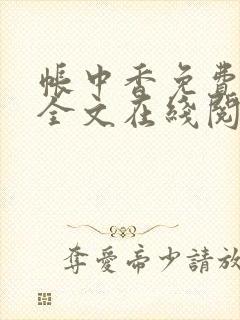 帳中香免費
全文在綫閱
奪愛帝少請放